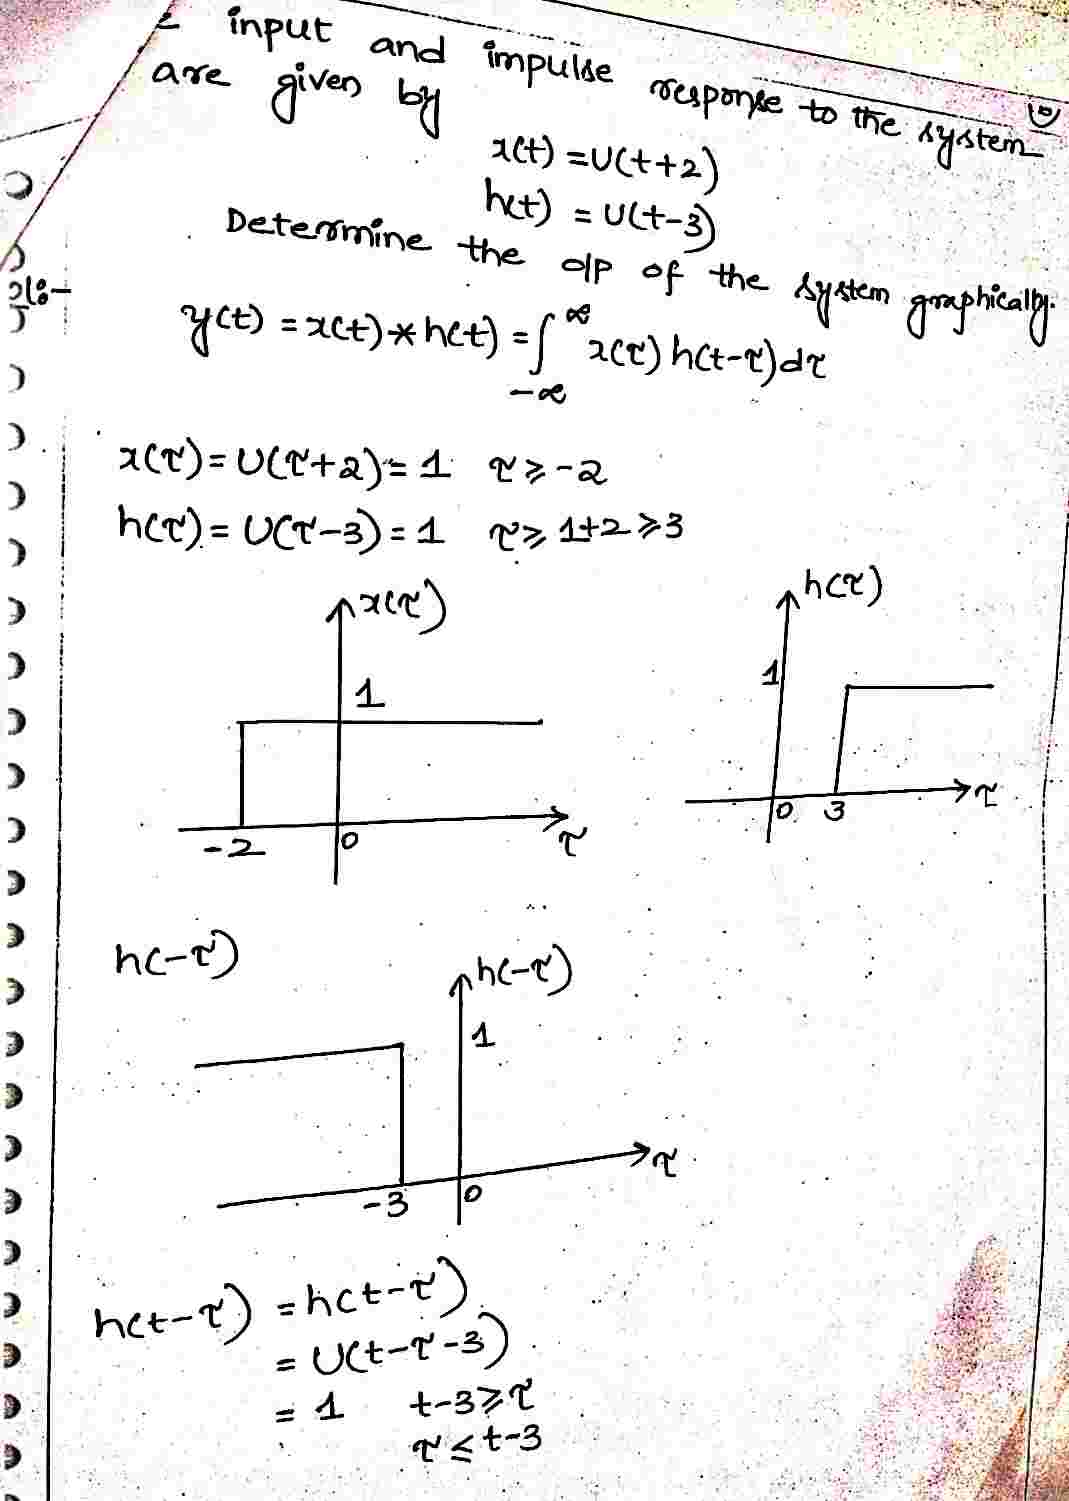 input and impulse response to the system
are given by
x(t) = U(t+2)
h(t) = U(t-3)
Determine the o/p of the system graphically.
y(t) = x(t) * h(t) = ∫_{-∞}^{∞} x(τ) h(t-τ) dτ
x(τ) = U(τ+2) = 1 τ ≥ -2
h(τ) = U(τ-3) = 1 τ ≥ 1+2 ≥ 3
x(τ)
1
-2 0 τ
h(τ)
1
0 3 τ
h(-τ)
h(-τ)
1
-3 0 τ
h(t-τ) = h(t-τ)
= U(t-τ-3)
= 1 t-3 ≥ τ
τ ≤ t-3